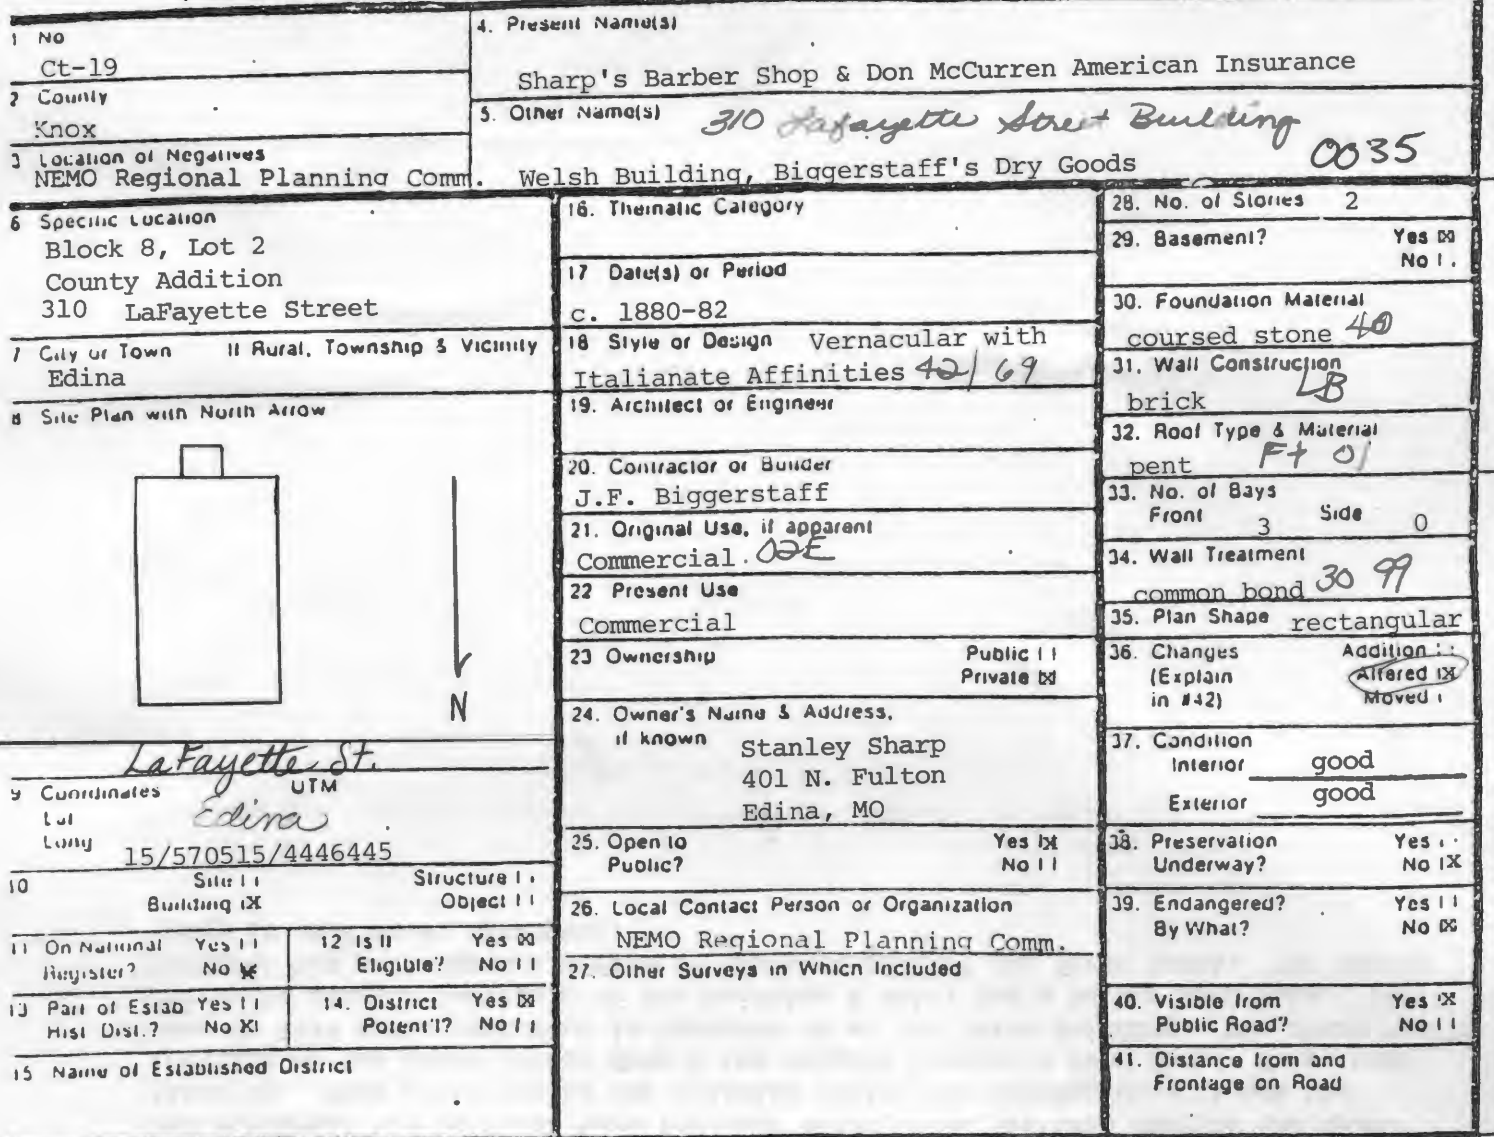 1 No
Ct-19
2 County
Knox
3 Location of Negatives
NEMO Regional Planning Comm.
4. Present Name(s)
Sharp's Barber Shop & Don McCurren American Insurance
5. Other Name(s) 310 Lafayette Street Building
0035
Welsh Building, Biggerstaff's Dry Goods
6 Specific Location
Block 8, Lot 2
County Addition
310 LaFayette Street
7 City or Town If Rural, Township & Vicinity
Edina
8 Site Plan with North Arrow
N
LaFayette St.
9 Coordinates UTM
Lat Edina
Long
15/570515/4446445
10 Site Structure
Building X Object
11 On National Yes
Register? No X
12 Is It Yes X
Eligible? No
13 Part of Estab Yes
Hist Dist.? No X
14. District Yes X
Potent'l? No
15 Name of Established District
16. Thematic Category
17 Date(s) or Period
c. 1880-82
18 Style or Design Vernacular with
Italianate Affinities 42/69
19. Architect or Engineer
20. Contractor or Builder
J.F. Biggerstaff
21. Original Use, if apparent
Commercial 02E
22 Present Use
Commercial
23 Ownership Public
Private X
24. Owner's Name & Address,
if known Stanley Sharp
401 N. Fulton
Edina, MO
25. Open to Yes X
Public? No
26. Local Contact Person or Organization
NEMO Regional Planning Comm.
27. Other Surveys in Which Included
28. No. of Stories 2
29. Basement? Yes X
No
30. Foundation Material
coursed stone 40
31. Wall Construction
brick LB
32. Roof Type & Material
pent Ft 01
33. No. of Bays
Front 3 Side 0
34. Wall Treatment
common bond 30 99
35. Plan Shape rectangular
36. Changes Addition
(Explain Altered X
in #42) Moved
37. Condition
Interior good
Exterior good
38. Preservation Yes
Underway? No X
39. Endangered? Yes
By What? No X
40. Visible from Yes X
Public Road? No
41. Distance from and
Frontage on Road